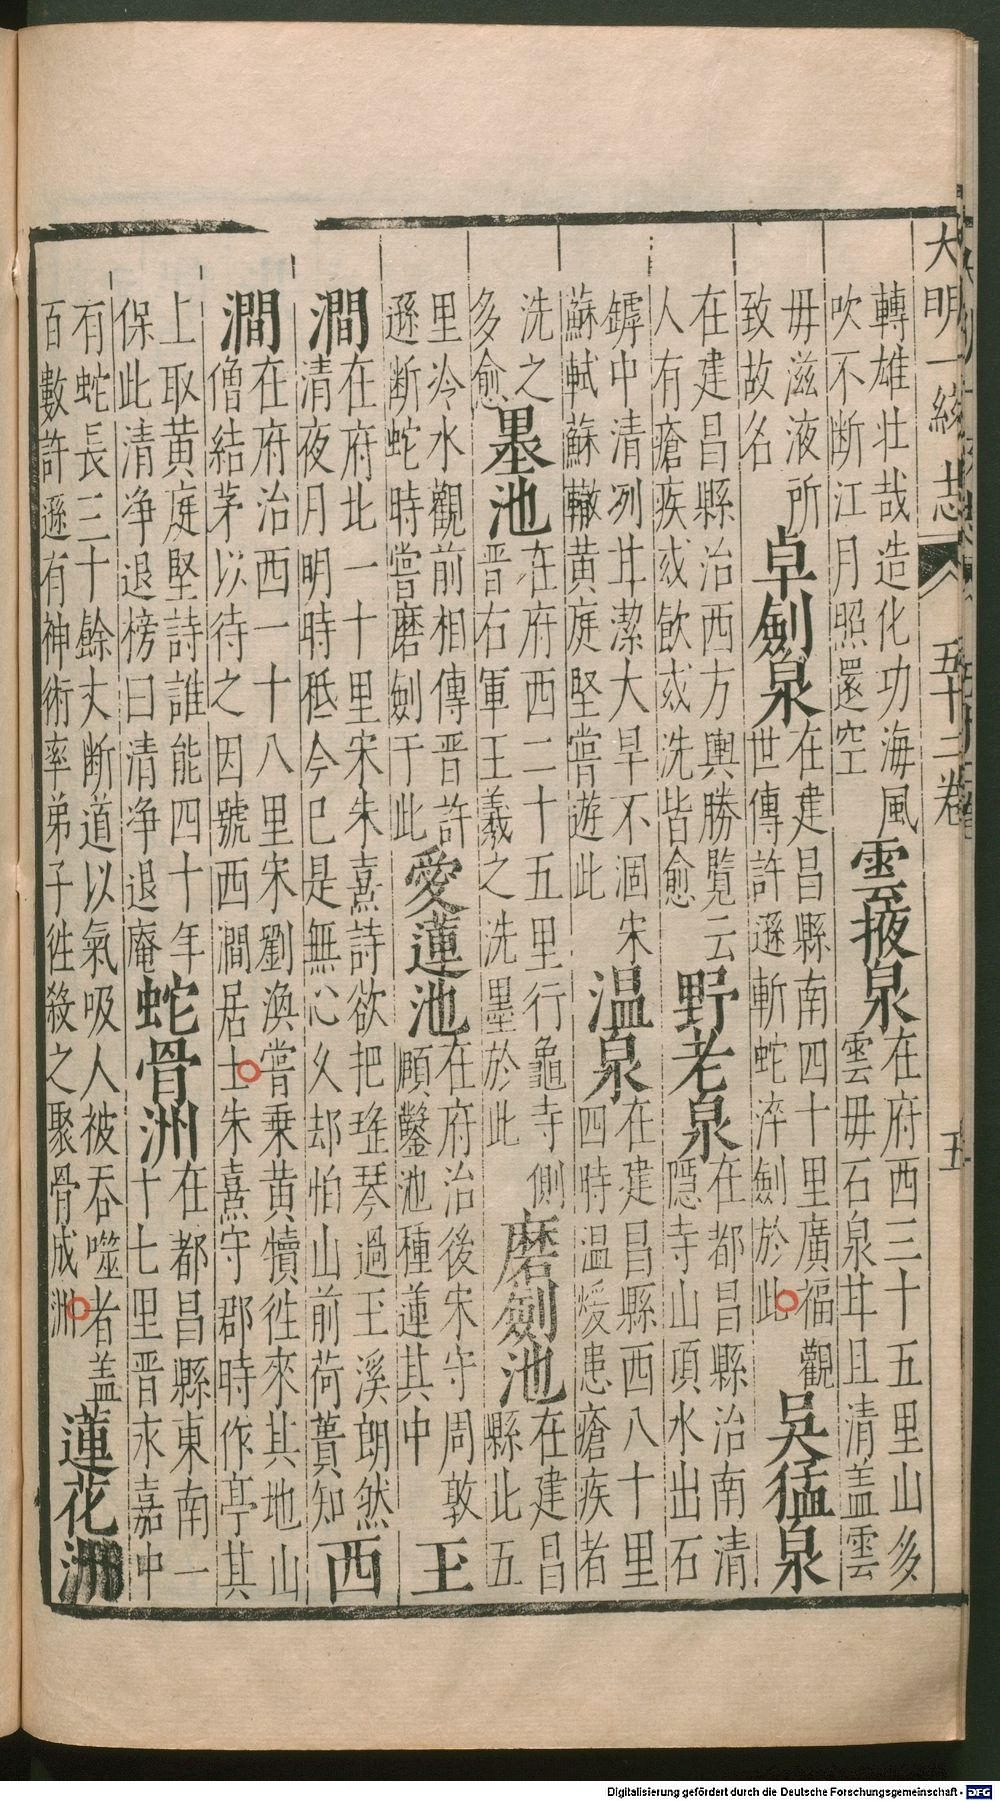 大明一統志 五十二卷 五
轉雄壯哉造化功海風
吹不断江月照還空
雲掖泉
在府西三十五里山多
雲毋石泉甘且清盖雲
毋滋液所
致故名
卓劍泉
在建昌縣南四十里廣福觀
世傳許遜斬蛇淬劍於此
吳猛泉
在建昌縣治西方輿勝覽云
人有瘡疾或飲或洗皆愈
野老泉
在都昌縣治南清
隠寺山頂水出石
罅中清冽甘潔大旱不涸宋
蘇軾蘇轍黄庭堅嘗遊此
温泉
在建昌縣西八十里
四時温煖患瘡疾者
洗之
多愈
墨池
在府西二十五里行龜寺側
晋右軍王羲之洗墨於此
磨劍池
在建昌
縣北五
里冷水觀前相傳晋許
遜断蛇時嘗磨劍于此
愛蓮池
在府治後宋守周敦
頤鑿池種蓮其中
玉
澗
在府北一十里宋朱熹詩欲把瑤琴過玉溪朗然
清夜月明時秪今已是無心乆却怕山前荷蕢知
西
澗
在府治西一十八里宋劉渙嘗乗黄犢徃來其地山
僧結茅以待之因號西澗居士朱熹守郡時作亭其
上取黄庭堅詩誰能四十年
保此清净退榜曰清净退庵
蛇骨洲
在都昌縣東南一
十七里晋永嘉中
有蛇長三十餘丈断道以氣吸人被吞噬者盖
百數許遜有神術率弟子徃殺之聚骨成洲
蓮花洲
Digitalisierung gefördert durch die Deutsche Forschungsgemeinschaft - DFG